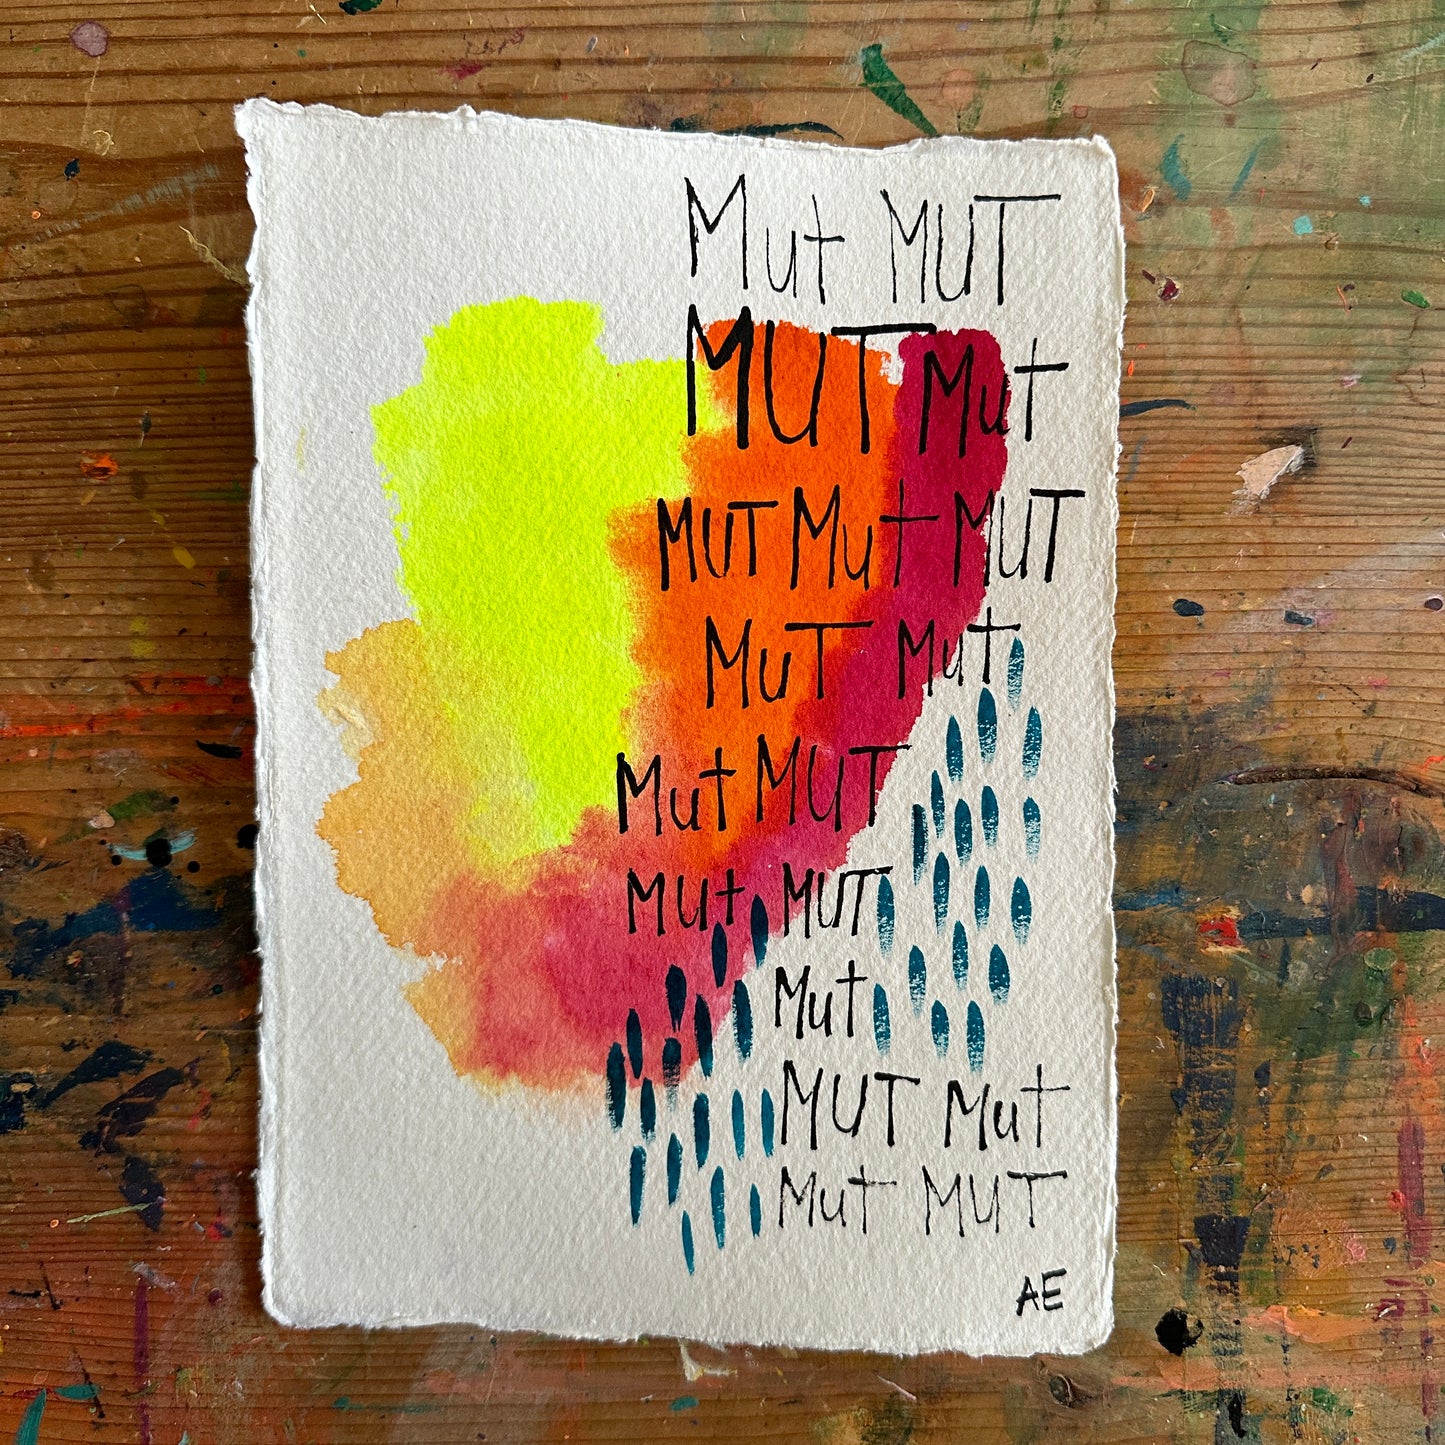 Mut MUT
MUT Mut
MUT Mut MUT
MuT Mut
Mut MUT
Mut MUT
Mut
MUT Mut
Mut MUT
AE